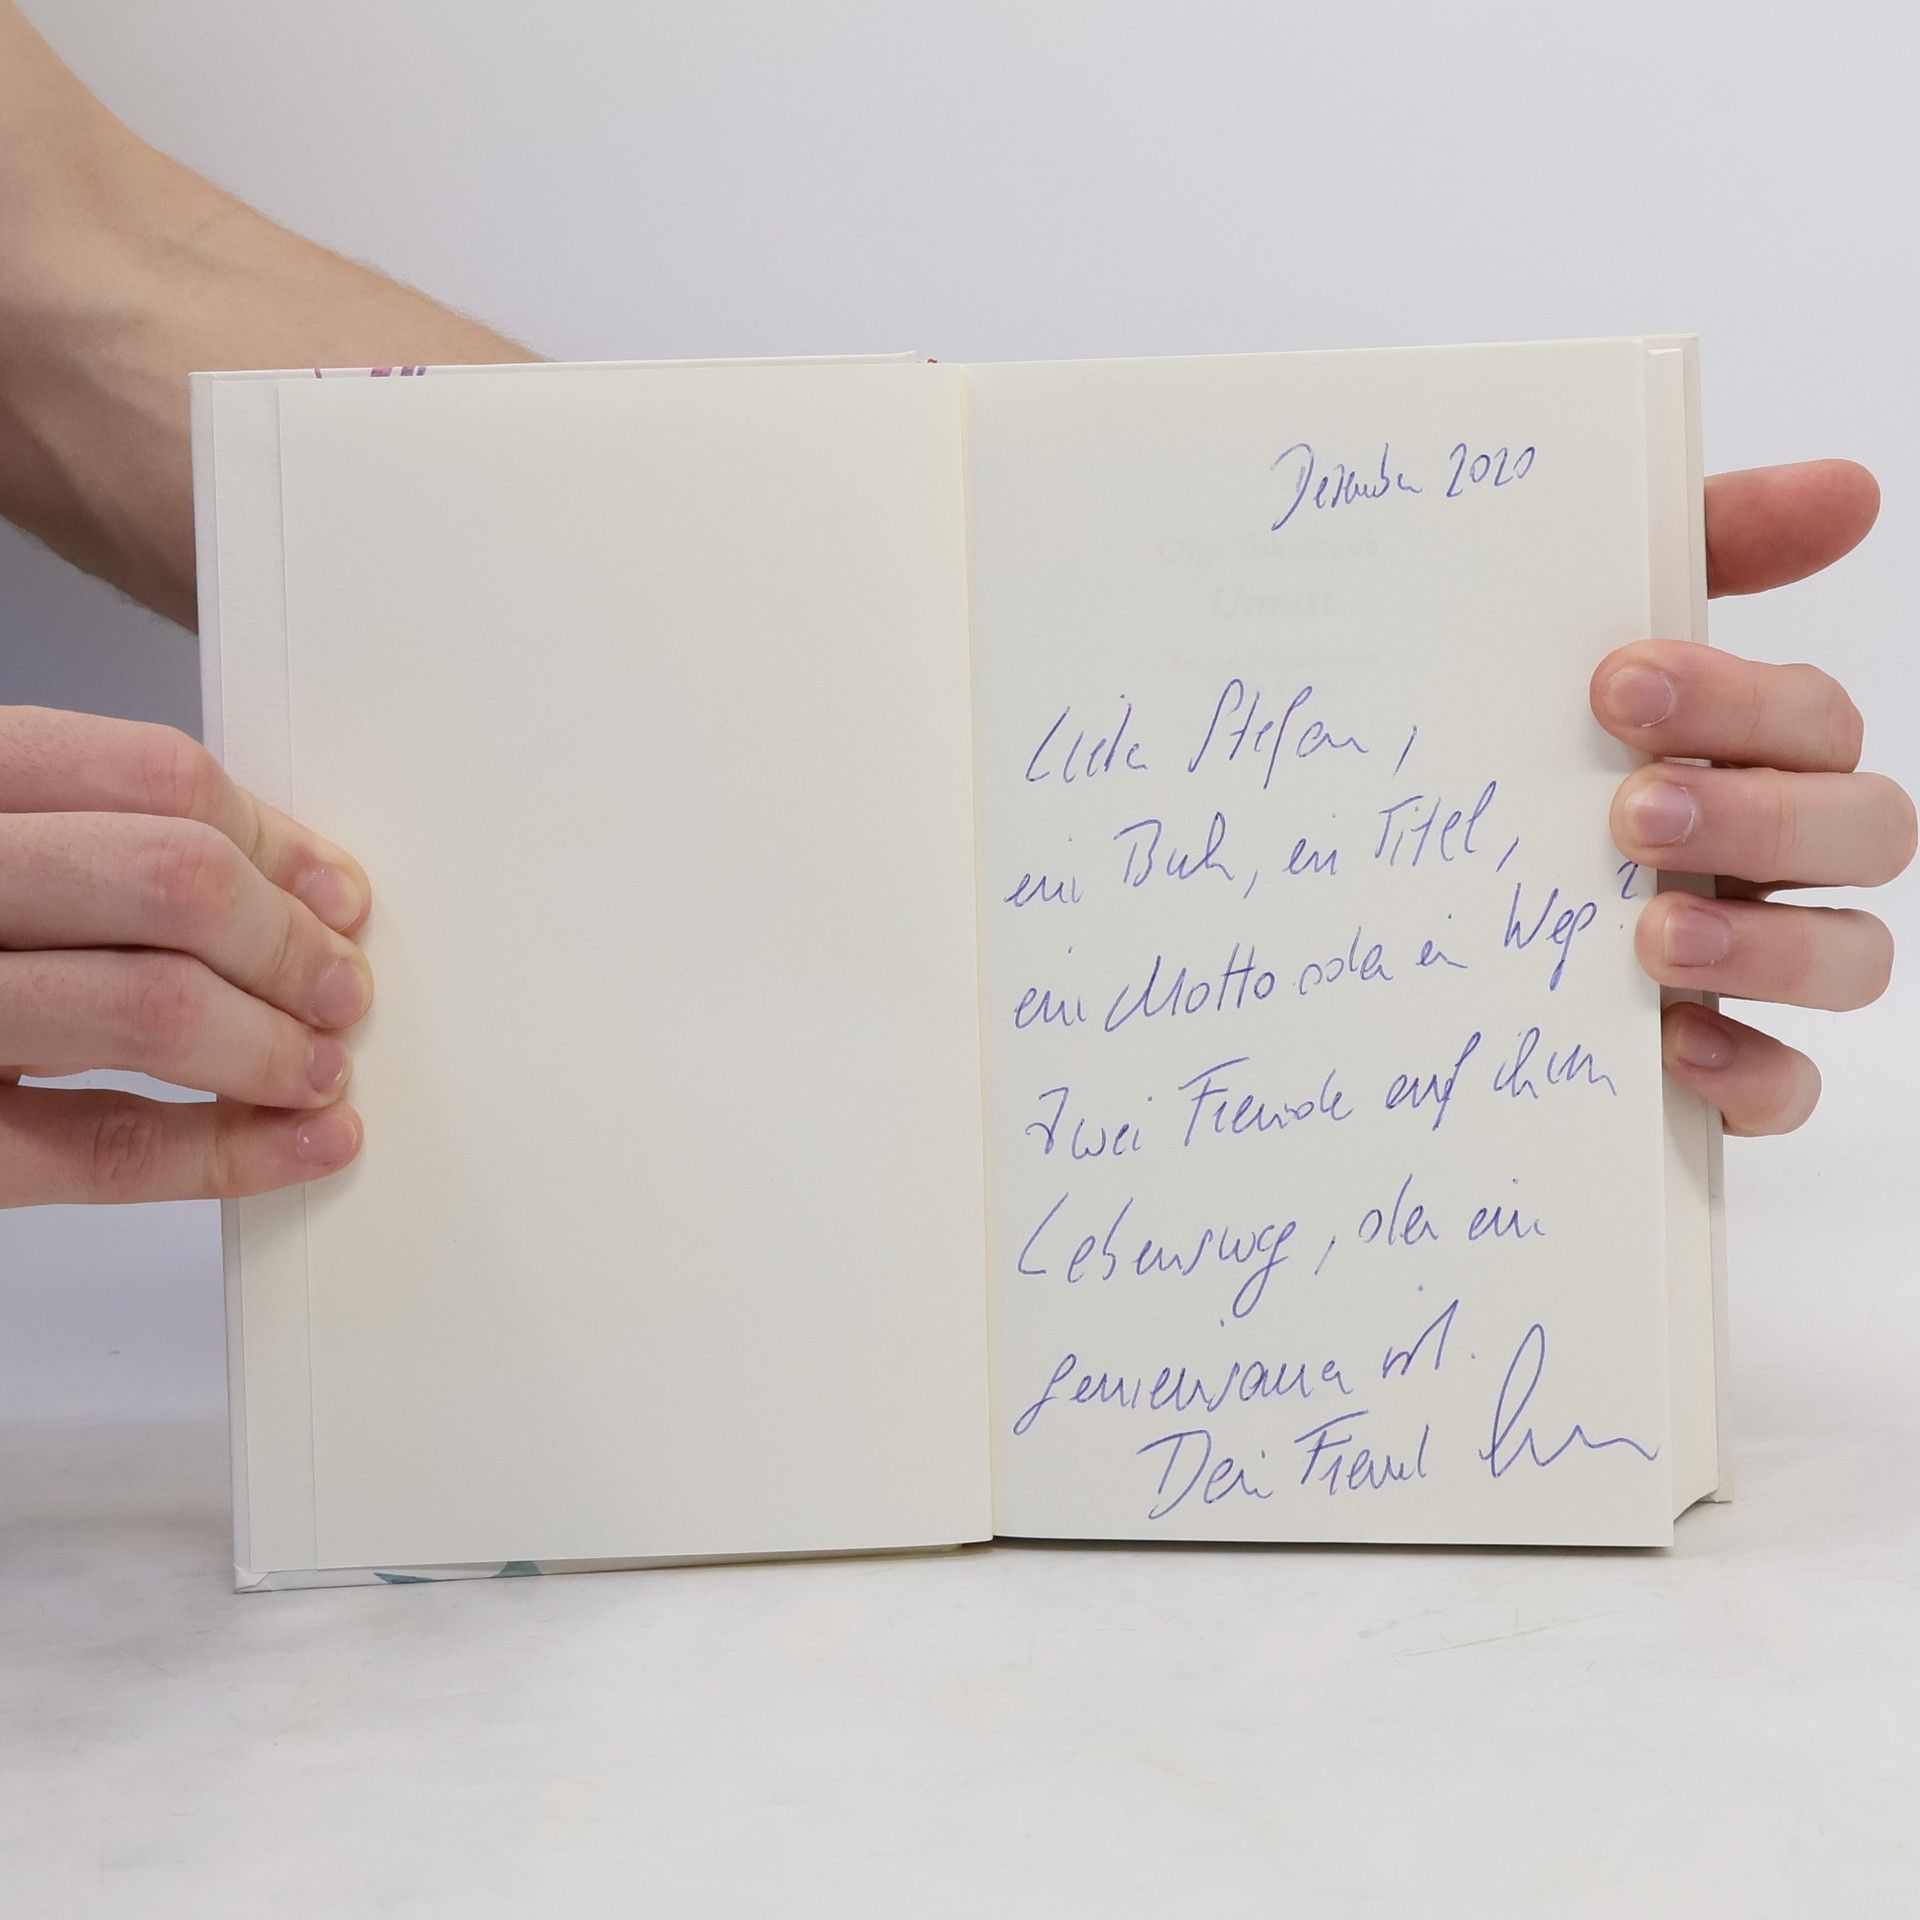 Dezember 2020
Olga Tokarczuk
Unrast
Lieber Stefan,
ein Buch, ein Titel,
ein Motto oder ein Weg?
Zwei Freunde auf ihrem
Lebensweg, der ein
gemeinsamer ist.
Dein Freund